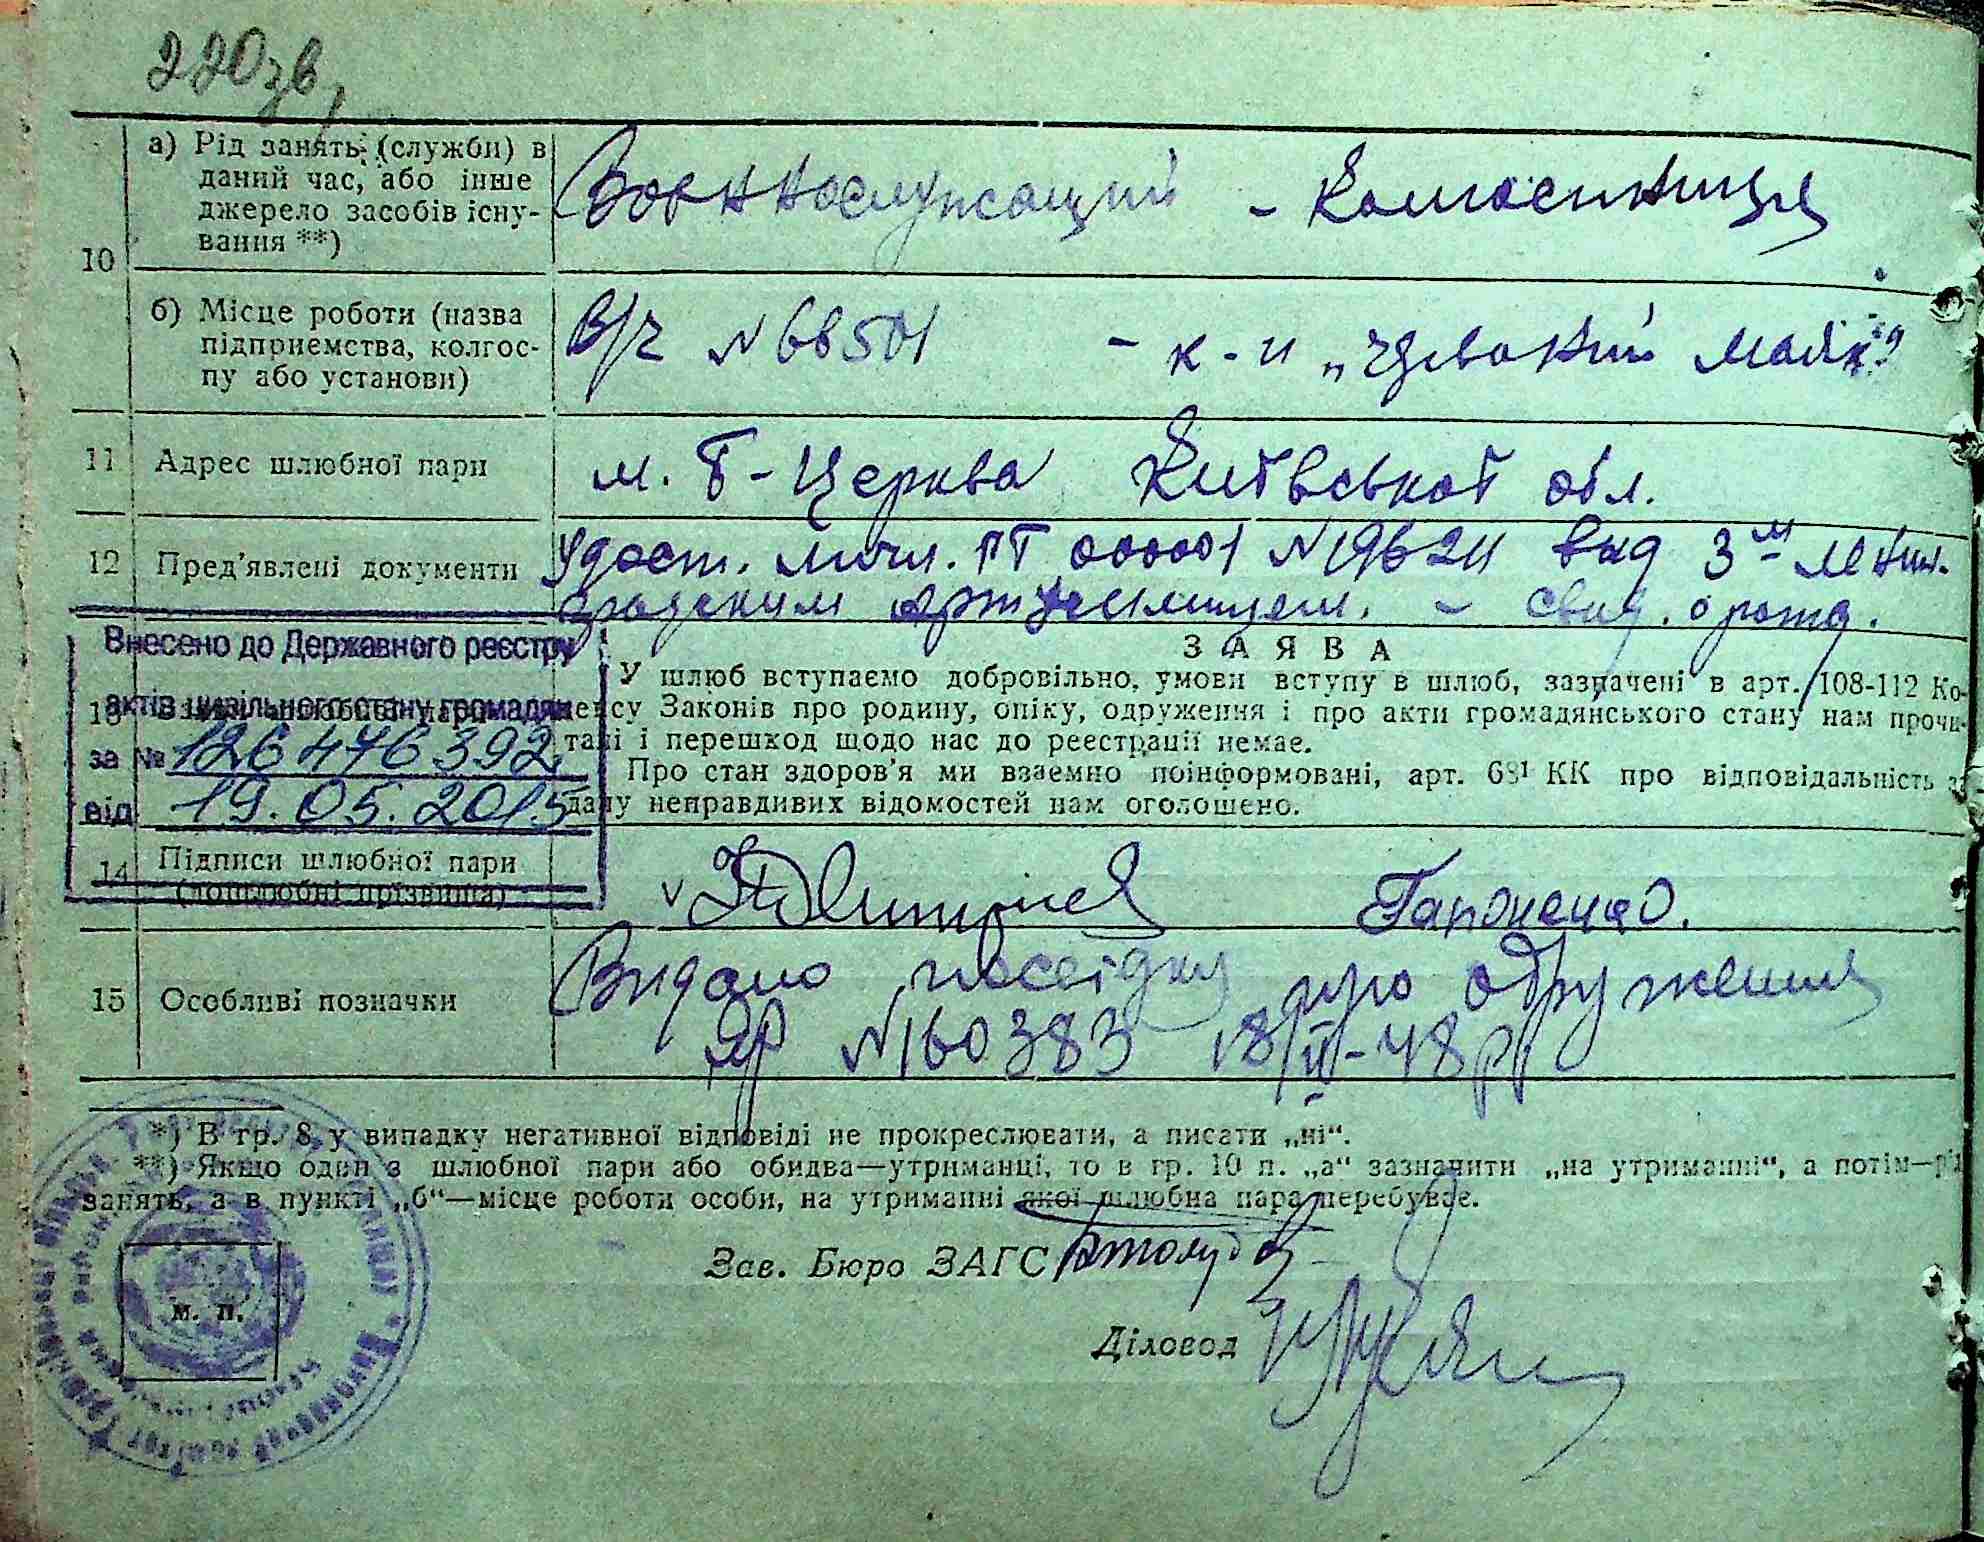 220зв,
а) Рід занять (служби) в
даний час, або інше
джерело засобів існу-
вання **)
10
Военнослужащий - Колгоспниця
б) Місце роботи (назва
підприемства, колгос-
пу або установи)
В/ч №68501 - к-п „ Маяк"
11 Адрес шлюбної пари
м. Б-Церква Київської обл.
12 Пред'явлені документи
Удост. личн. ПТ 000001 №19624 вид 3м Ленин.
градским артучилищем. - свид. о рожд.
Внесено до Державного реєстру
актів цивільного стану громадян
за № 126476392
від 19.05.2015
13
З А Я В А
У шлюб вступаємо добровільно, умови вступу в шлюб, зазначені в арт. 108-112 Ко-
дексу Законів про родину, опіку, одруження і про акти громадянського стану нам прочи-
тані і перешкод щодо нас до реестрації немає.
Про стан здоров'я ми взаемно поінформовані, арт. 68¹ КК про відповідальність за
дачу неправдивих відомостей нам оголошено.
14 Підписи шлюбної пари
(дошлюбні прізвища)
v Гапоненко.
15 Особливі позначки
Видано посвідку про одруження
ЯР №160383 18/II-48р
*) В гр. 8 у випадку негативної відповіді не прокреслювати, а писати „ні“.
**) Якщо один з шлюбної пари або обидва—утриманці, то в гр. 10 п. „а“ зазначити „на утриманні“, а потім—рід
занять, а в пункті „б“—місце роботи особи, на утриманні якої шлюбна пара перебуває.
Зав. Бюро ЗАГС
Діловод
М. П.